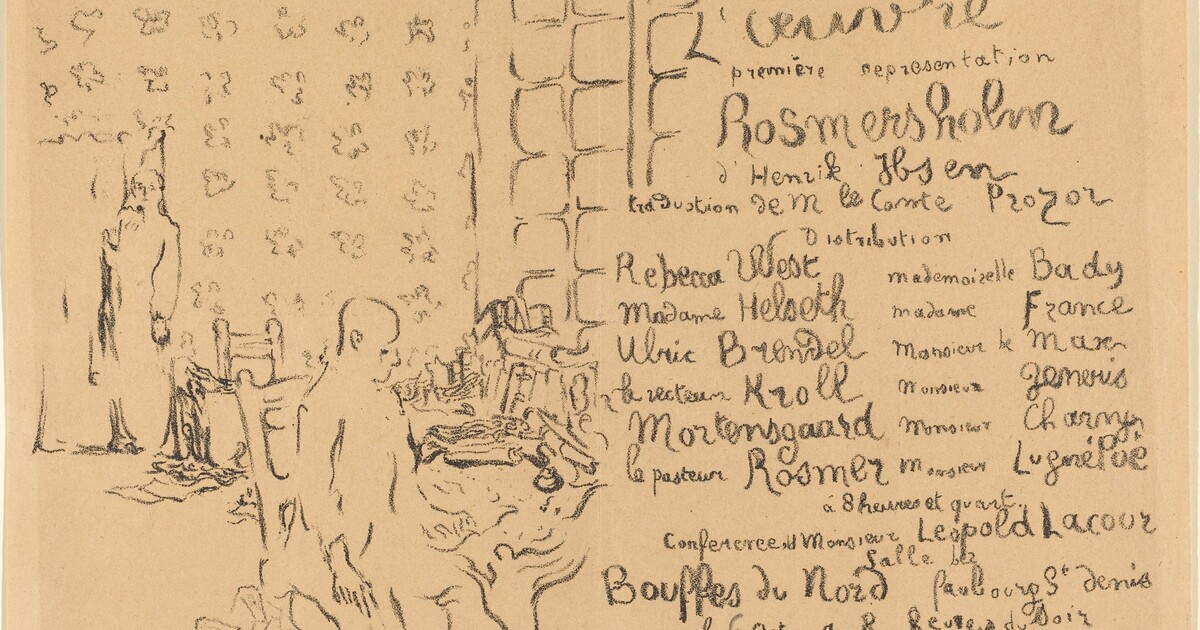 L'œuvre
première representation
Rosmersholm
d'Henrik Ibsen
traduction de M le Comte Prozor
Distribution
Rebecca West mademoiselle Bady
Madame Helseth madame France
Ulric Brendel Monsieur de Max
le recteur Kroll Monsieur
Mortensgaard Monsieur Charny
le pasteur Rosmer Monsieur LugnéPoë
à 8 heures et quart.
Conference d Monsieur Leopold Lacour
Salle des
Bouffes du Nord faubourg St denis
du Soir